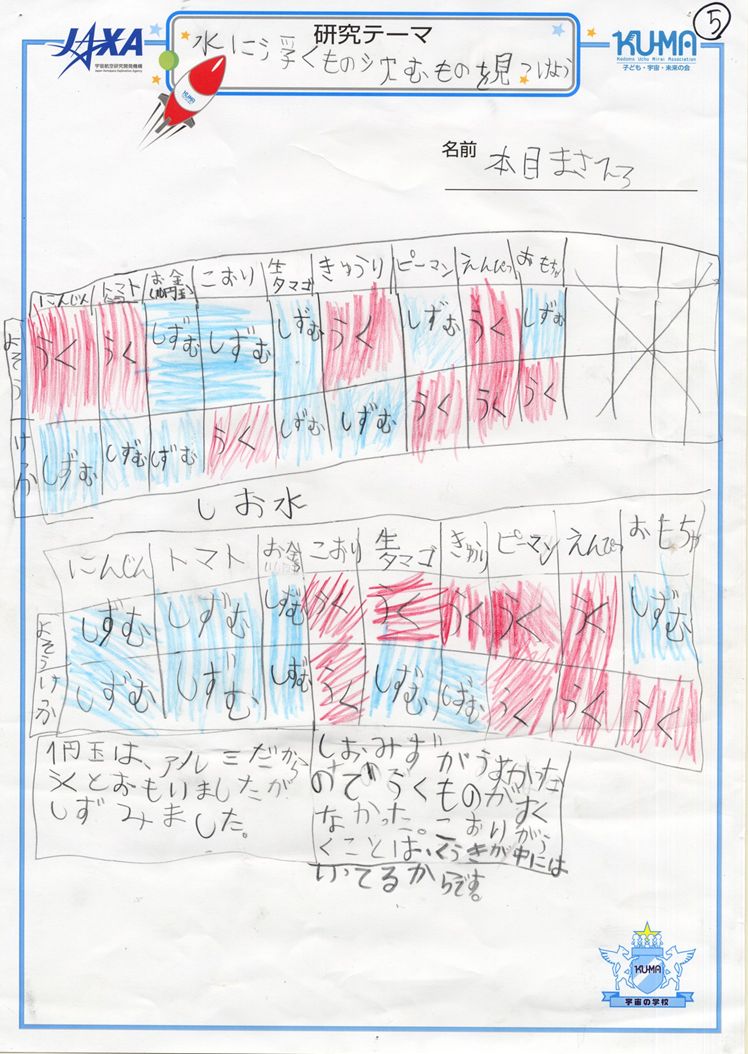 5
JAXA
宇宙航空研究開発機構
Japan Aerospace Exploration Agency
研究テーマ
水にう浮くもの沈むものを見つけよう
KUMA
KU-MA
Kodomo Uchu Mirai Association
子ども・宇宙・未来の会
名前 本目まさひろ
にんじん トマト お金 こおり 生タマゴ きゅうり ピーマン えんぴつ おもちゃ
よそう うく うく しずむ しずむ しずむ うく しずむ うく しずむ
けっか しずむ しずむ しずむ うく しずむ しずむ うく うく うく
しお水
にんじん トマト お金 こおり 生タマゴ きゅうり ピーマン えんぴつ おもちゃ
よそう しずむ しずむ しずむ うく うく うく うく うく しずむ
けっか しずむ しずむ しずむ うく しずむ しずむ うく うく うく
1円玉は、アルミだから
うくとおもいましたが
しずみました。
しおみずがうすかった
のでうくものがすく
なかった。こおりがう
くことは、くうきが中には
いてるからです。
KU-MA
宇宙の学校